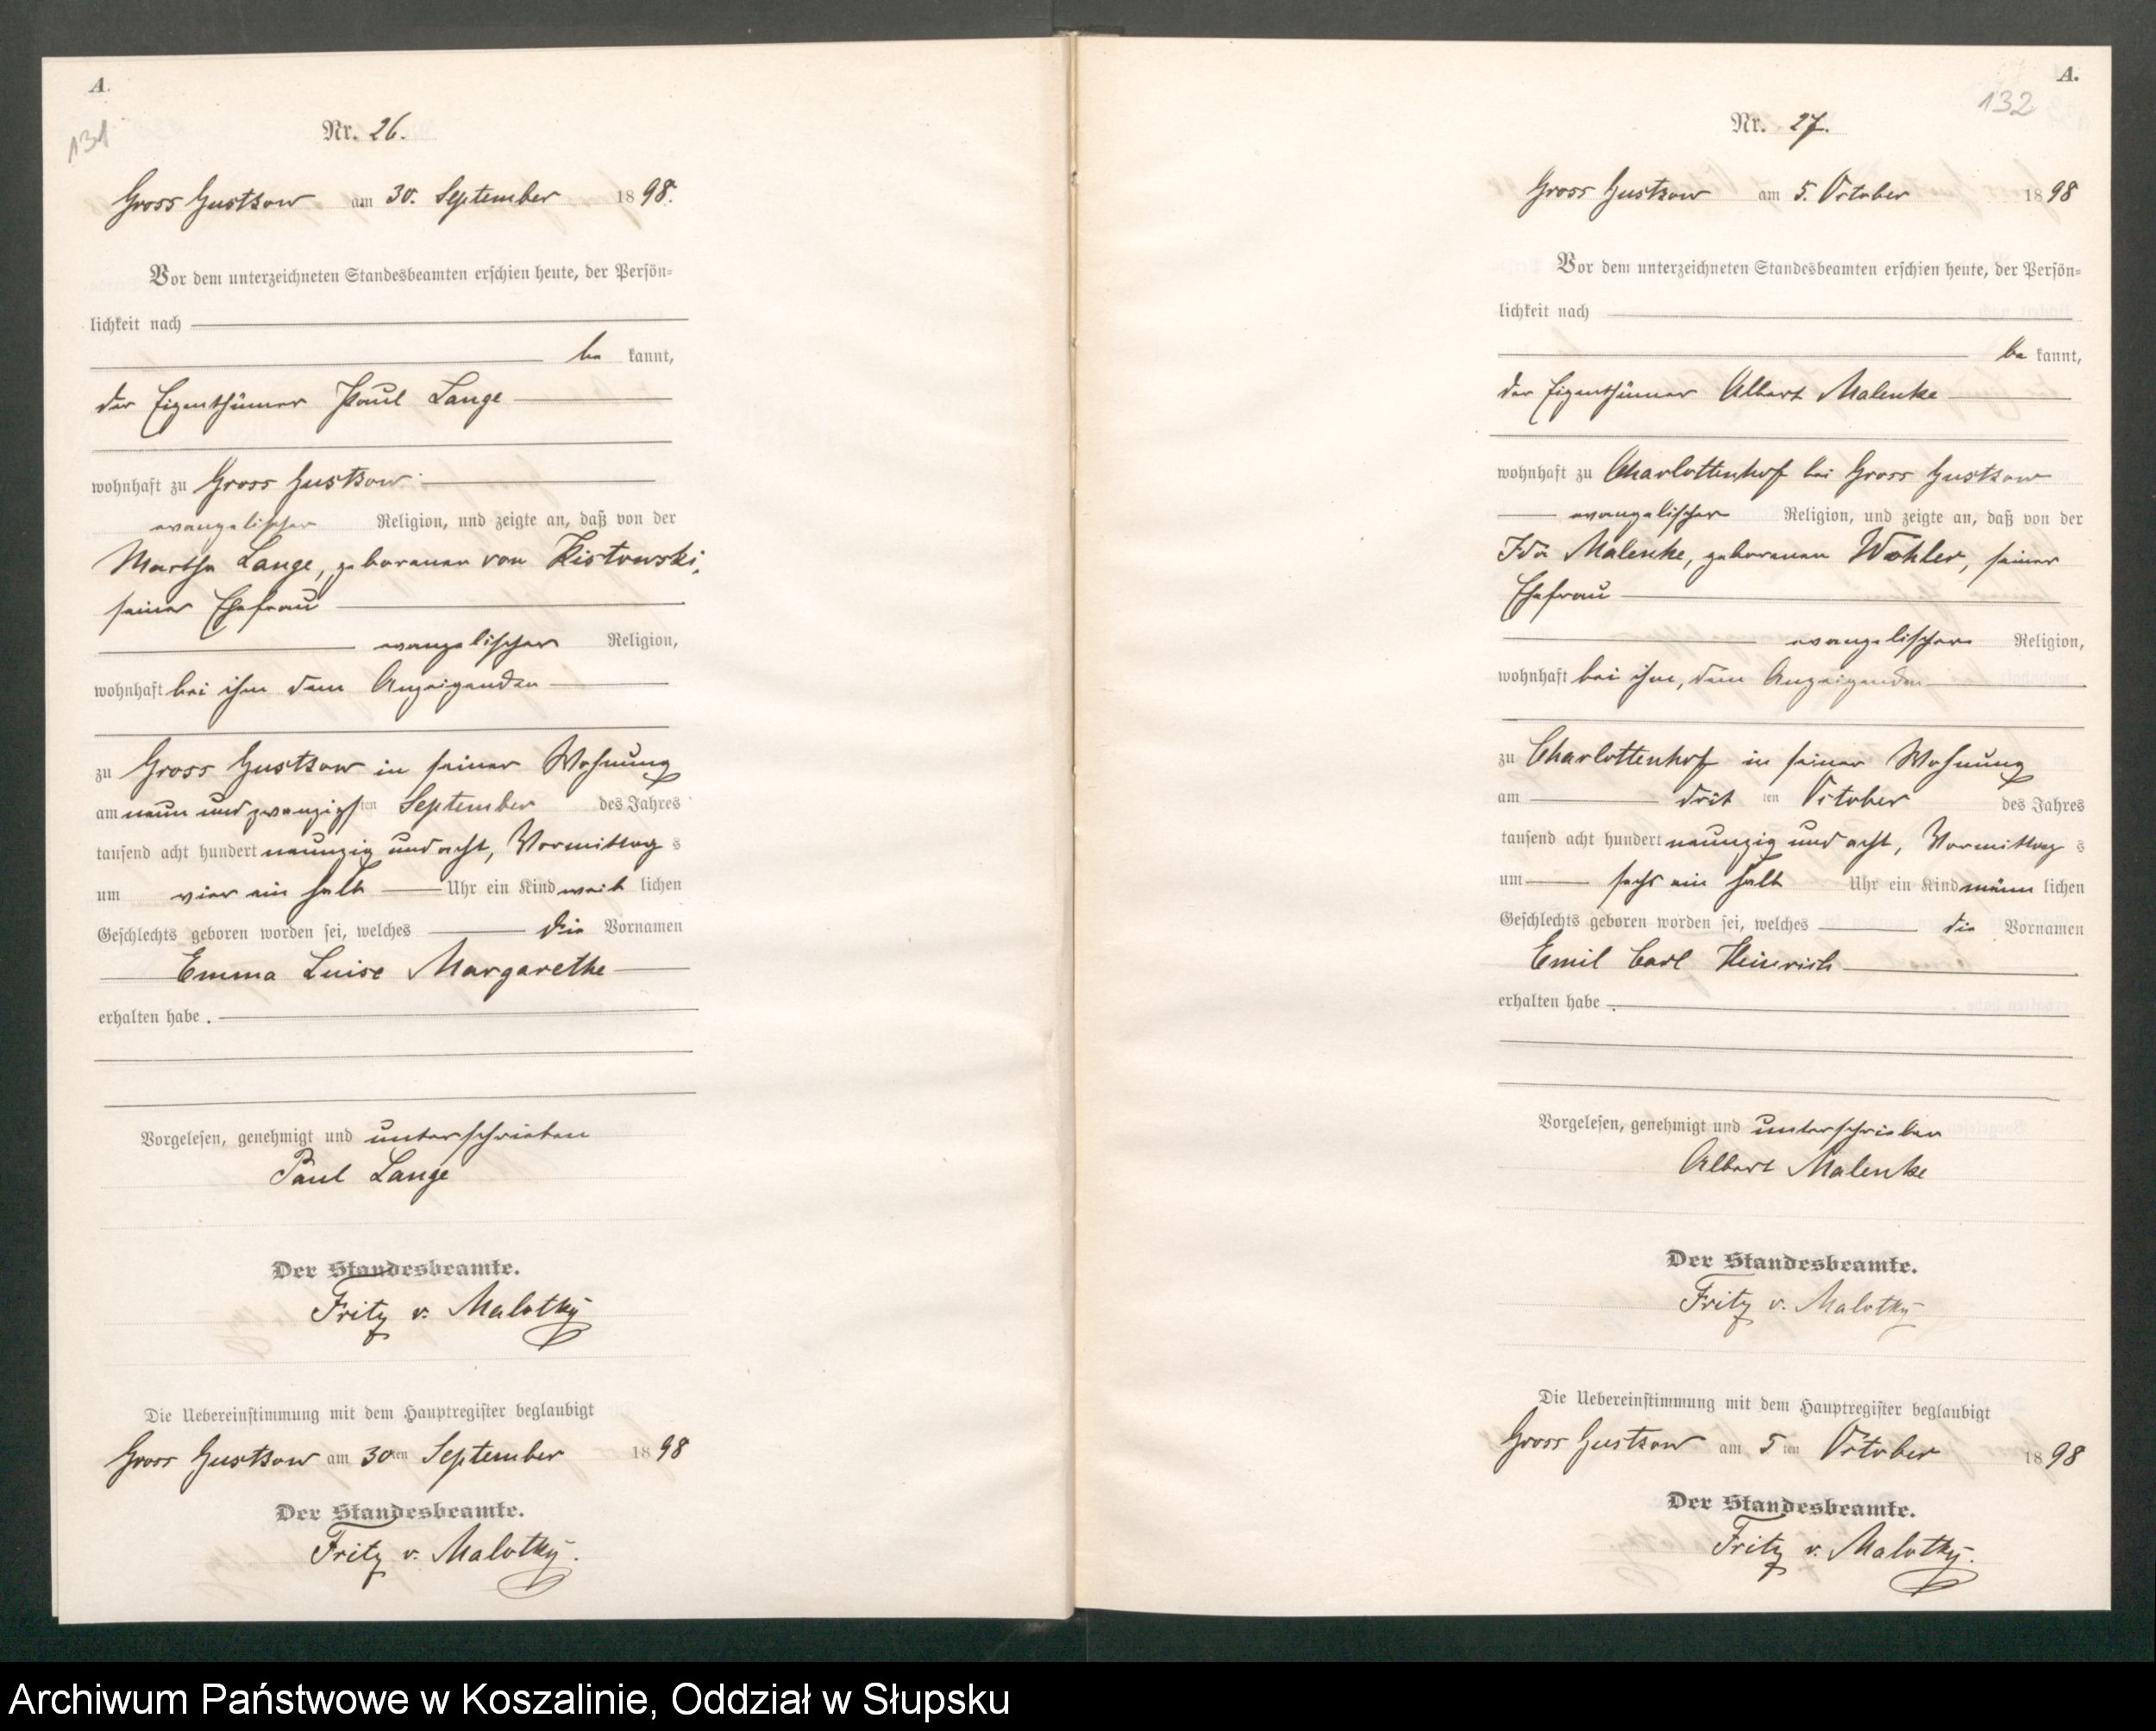 A.
131
Nr. 26.
Gross Gustkow am 30. September 1898.
Vor dem unterzeichneten Standesbeamten erschien heute, der Persön-
lichkeit nach
be kannt,
der Eigenthümer Paul Lange
wohnhaft zu Gross Gustkow
evangelischer Religion, und zeigte an, daß von der
Martha Lange, geborenen von Kistowski,
seiner Ehefrau
evangelischer Religion,
wohnhaft bei ihm dem Anzeigenden
zu Gross Gustkow in seiner Wohnung
am neun und zwanzigsten September des Jahres
tausend acht hundert neunzig und acht, Vormittags
um vier ein halb Uhr ein Kind weiblichen
Geschlechts geboren worden sei, welches die Vornamen
Emma Luise Margarethe
erhalten habe.
Vorgelesen, genehmigt und unterschrieben
Paul Lange
Der Standesbeamte.
Fritz v. Malotky
Die Uebereinstimmung mit dem Hauptregister beglaubigt
Gross Gustkow am 30ten September 1898
Der Standesbeamte.
Fritz v. Malotky.
A.
132
Nr. 27.
Gross Gustkow am 5. October 1898
Vor dem unterzeichneten Standesbeamten erschien heute, der Persön-
lichkeit nach
be kannt,
der Eigenthümer Albert Malenke
wohnhaft zu Charlottenhof bei Gross Gustkow
evangelischer Religion, und zeigte an, daß von der
Ida Malenke, geborenen Wohler, seiner
Ehefrau
evangelischer Religion,
wohnhaft bei ihm, dem Anzeigenden
zu Charlottenhof in seiner Wohnung
am dritten October des Jahres
tausend acht hundert neunzig und acht, Vormittags
um sechs ein halb Uhr ein Kind männlichen
Geschlechts geboren worden sei, welches die Vornamen
Emil Carl Heinrich
erhalten habe.
Vorgelesen, genehmigt und unterschrieben
Albert Malenke
Der Standesbeamte.
Fritz v. Malotky
Die Uebereinstimmung mit dem Hauptregister beglaubigt
Gross Gustkow am 5ten October 1898
Der Standesbeamte.
Fritz v. Malotky.
Archiwum Państwowe w Koszalinie, Oddział w Słupsku